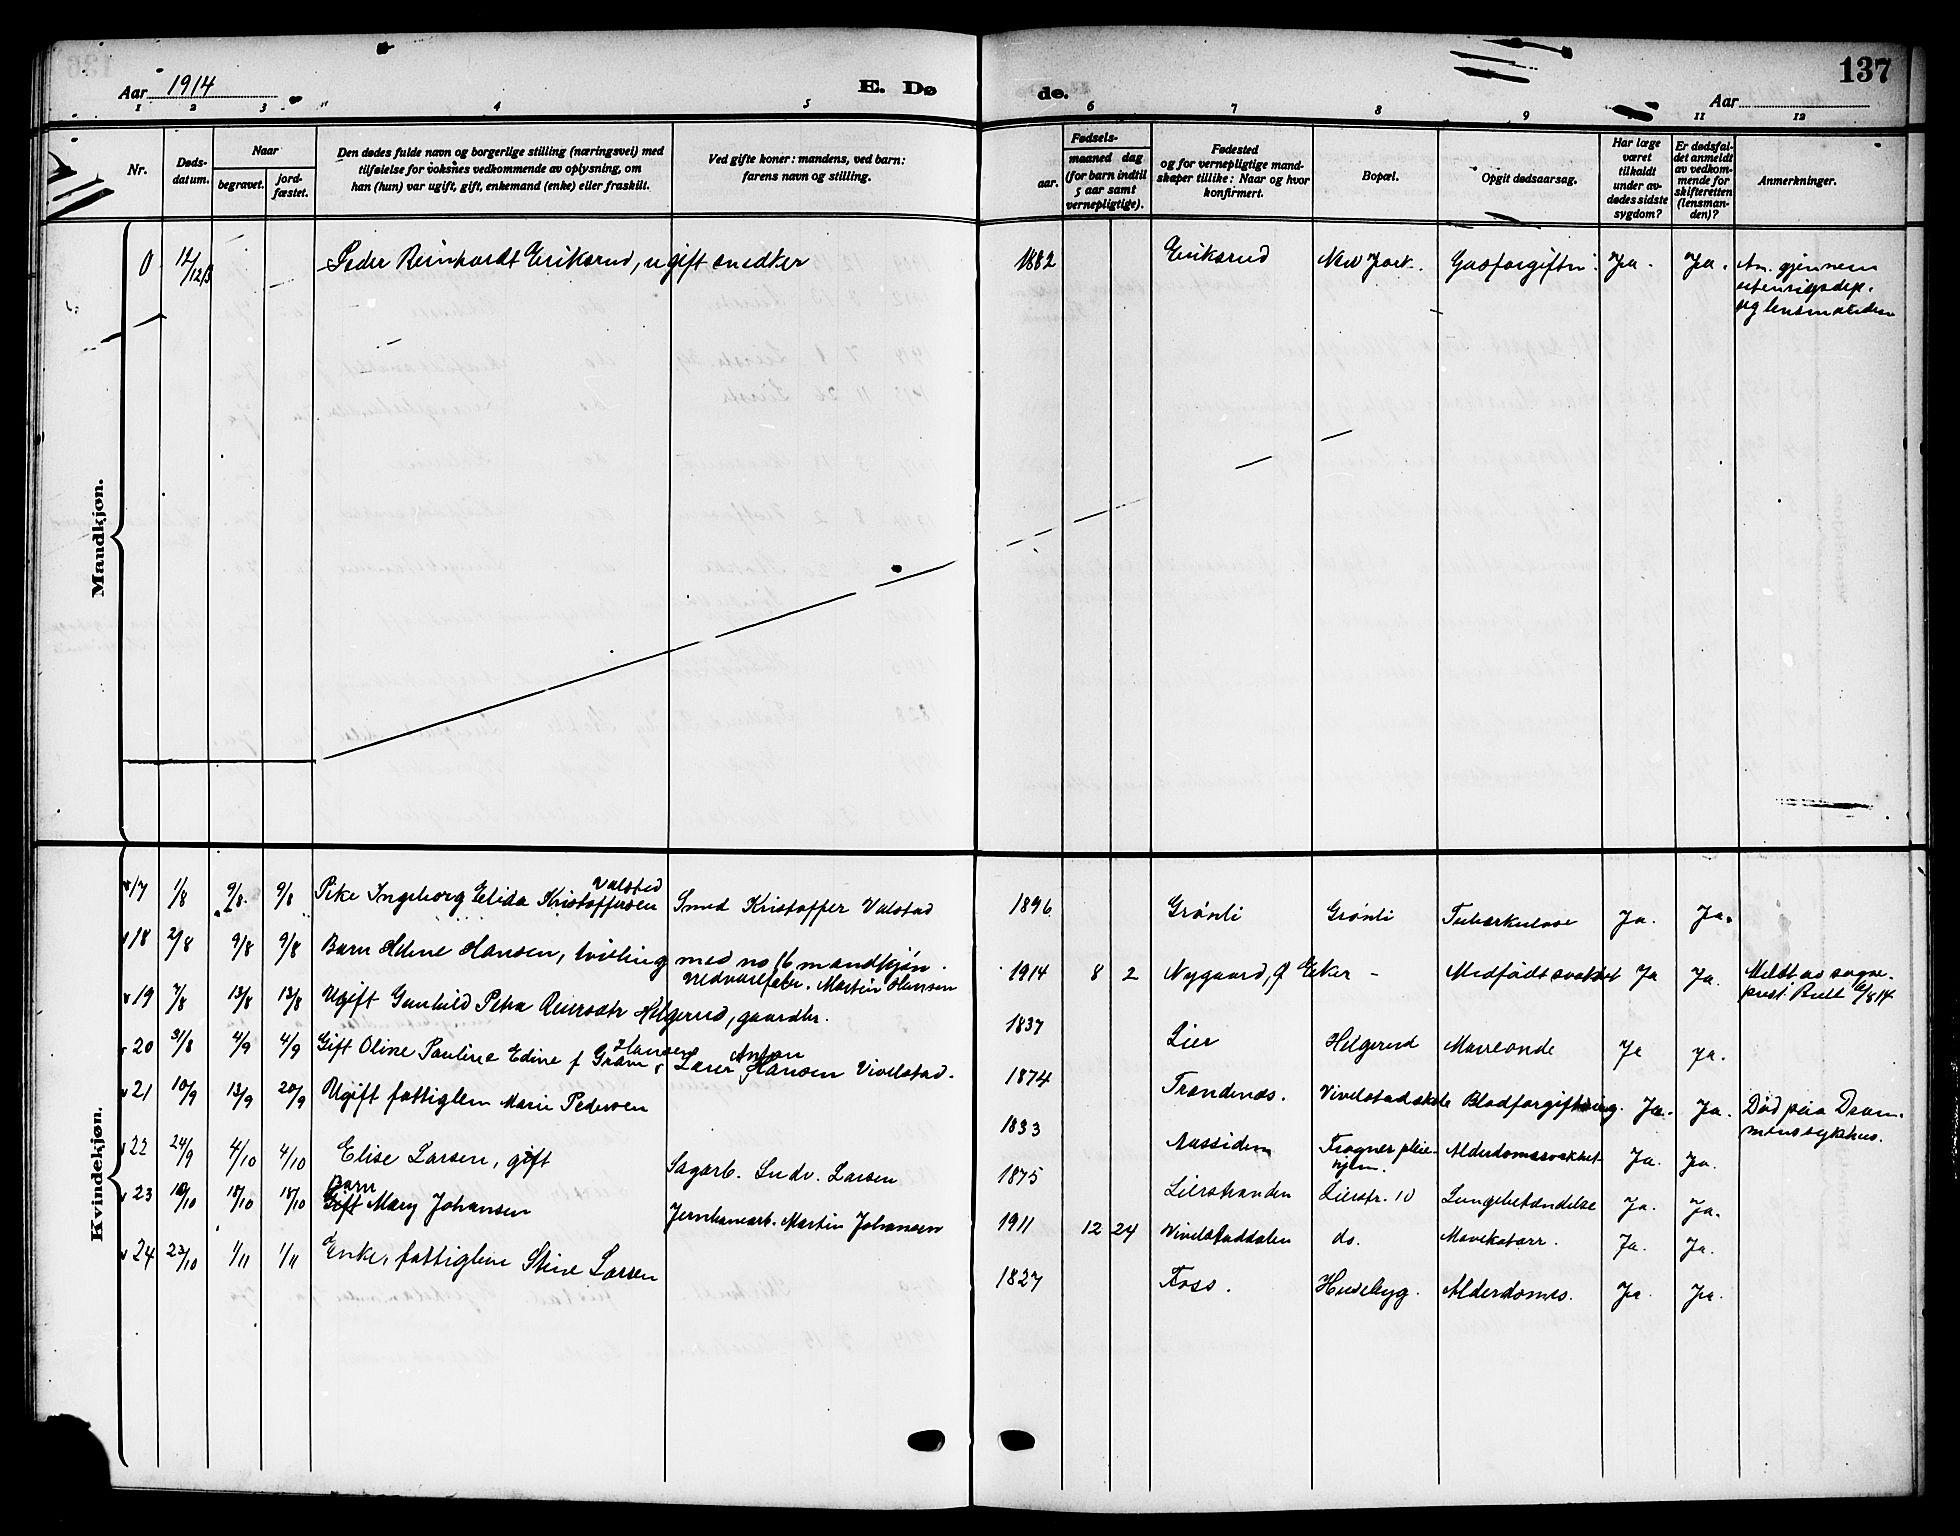 Aar 1914
E. Dø
de.
137
Aar
1 2 3 4 5 6 7 8 9 11 12
Nr.
Døds-
datum.
Naar
begravet.
jord-
fæstet.
Den dødes fulde navn og borgerlige stilling (næringsvei) med
tilføielse for voksnes vedkommende av oplysning, om
han (hun) var ugift, gift, enkemand (enke) eller fraskilt.
Ved gifte koner: mandens, ved barn:
farens navn og stilling.
Fødsels-
aar.
maaned dag
(for barn indtil
5 aar samt
vernepligtige).
Fødested
og for vernepligtige mand-
skaper tillike: Naar og hvor
konfirmert.
Bopæl.
Opgit dødsaarsag.
Har læge
været
tilkaldt
under av-
dødes sidste
sygdom?
Er dødsfal-
det anmeldt
av vedkom-
mende for
skifteretten
(lensman-
den)?
Anmerkninger.
Mandkjøn.
0 12/12 13 Peder Reinhardt Eriksrud, ugift snedker 1882 Eriksrud New York. Gasforgiftn. Ja. Ja. An. gjennem
utenrigsdep.
og lensmanden
Kvindekjøn.
17 1/8 9/8 9/8 Pike Ingeborg Elida Kristoffersen Valstad Smed Kristoffer Valstad 1896 Grønli Grønli Tuberkulose Ja. Ja.
18 2/8 9/8 9/8 Barn Heline Hansen, tvilling med no 16 mandkjøn. Martin Hansen 1914 8 2 Nygaard, Ø Eker - Medfødt svakhet Ja Ja. Meldt av sogne-
prest Bull 6/8 14
19 7/8 13/8 13/8 Ugift Gunhild Petra Reiersdtr Helgerud, gaardbr. 1837 Lier Helgerud Ja Ja.
20 31/8 4/9 4/9 Gift Oline Pauline Edine f Hansen Gram, Anton Hansen Vivelstad. 1874 Trondenes. Vivelstadskole Blodforgiftning. Ja. Ja. Død paa Dram-
mens sykehus.
21 10/9 13/9 20/9 Ugift fattiglem Marie Pedersen 1833 Aassiden Frogner pleie-
hjem. Alderdomssvakhet Ja. Ja.
22 24/9 4/10 4/10 Elise Larsen, gift Sagarb. Ludv. Larsen 1875 Lierstranden Lierstr. 10 Lungebetændelse Ja. Ja.
23 10/10 18/10 18/10 Gift Barn Mary Johansen Jernbanearb. Martin Johansen 1911 12 24 Vivelstaddalen do. Mavekatarr. Ja. Ja.
24 23/10 1/11 1/11 Enke, fattiglem Stine Larsen 1827 Foss. Huseby g. Alderdoms. Ja. Ja.